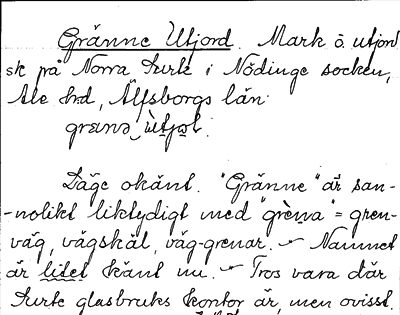 Gränne Utjord. Mark o. utjord
sk på Norra Surte i Nödinge socken,
Ale hd, Älfsborgs län.
Läge okänt. "Gränne" är san-
-nolikt liktydigt med "grèna" = gren-
väg, vägskäl, väg-grenar. Namnet
är litet känt nu. Tros vara där
Surte glasbruks kontor är, men ovisst.